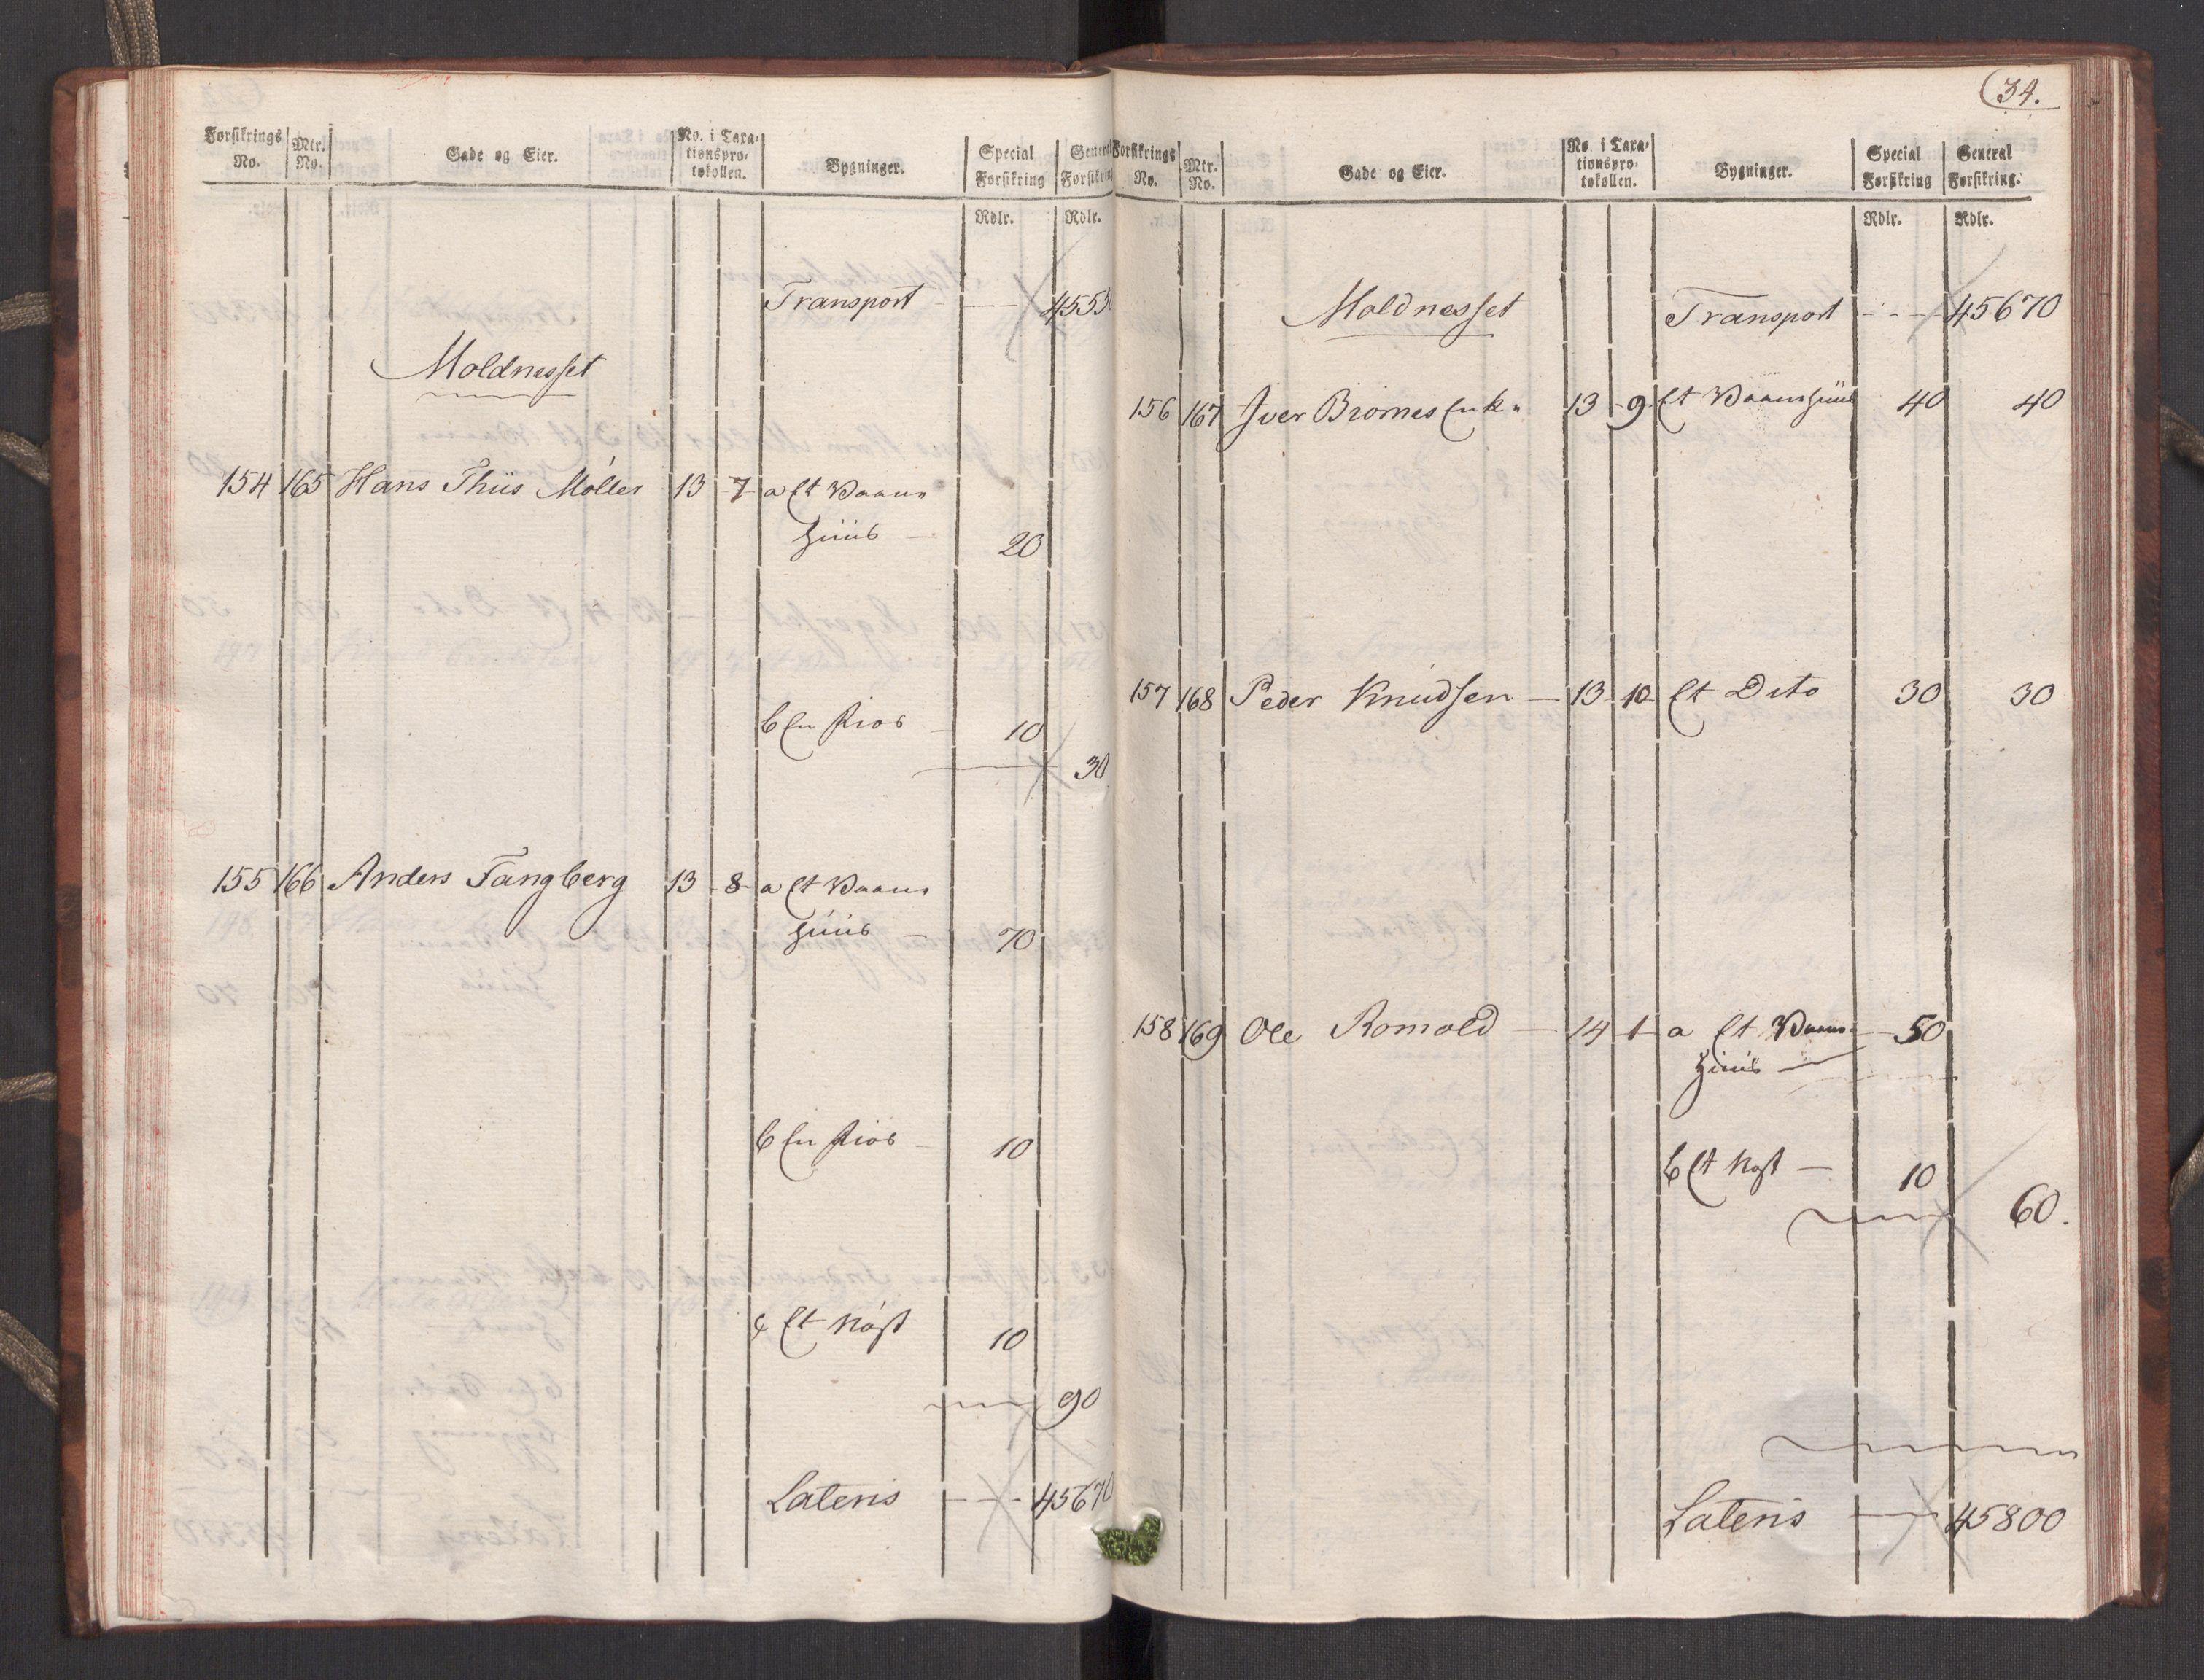 Forsikrings No. Mtr. No. Gade og Eier. No. i Taxationsprotokollen. Bygninger. Special Forsikring General
Rdlr. Rdlr.
Transport - - - 4555
Moldnesset
154 165 Hans Thiis Möller 13 - 7 - a Et Vaanhuus - 20
b En Kios - 10
30
155 166 Anders Tangberg 13 - 8 - a Et Vaanhuus - 70
b En Kios - 10
c Et Nøst 10
90
Lateris - - - 45670
34.
Forsikrings No. Mtr. No. Gade og Eier. No. i Taxationsprotokollen. Bygninger. Special Forsikring General Forsikring.
Rdlr. Rdlr.
Moldnesset Transport - - - 45670
156 167 Iver Biornes Enk. 13 - 9 - Et Vaanhuus 40 40
157 168 Peder Knudsen - 13 - 10 - Et Dito 30 30
158 169 Ole Romold - 14 - 1 - a Et Vaanhuus - 50
b Et Nøst - 10
60.
Lateris - 45800